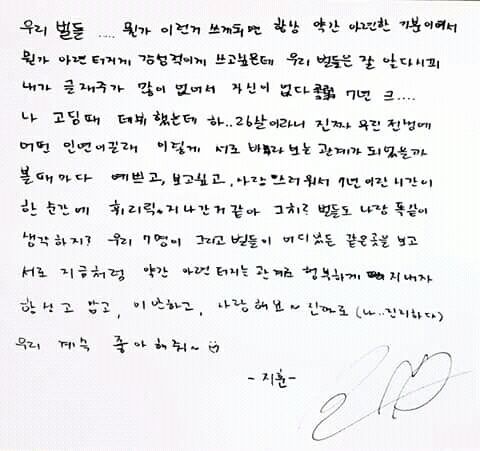 우리 별들 .... 뭔가 이런거 쓰게되면 항상 약간 아련한 기분이여서
뭔가 아련 터지게 감성적이게 쓰고싶은데 우리 별들은 잘 알다시피
내가 글재주가 많이 없어서 자신이 없다 7년 크....
나 고딩때 데뷔 했는데 하..26살이라니 진짜 우린 전생에
어떤 인연이길래 이렇게 서로 바라보는 관계가 되었을까
볼때마다 예쁘고, 보고싶고, 사랑스러워서 7년이란 시간이
한순간에 휘리릭 지나간거 같아 그치? 별들도 나랑 똑같이
생각하지? 우리 7명이 그리고 별들이 어디있든 같은곳을 보고
서로 지금처럼 약간 아련 터지는 관계로 행복하게 지내자
항상 고맙고, 미안하고, 사랑해요~ 진짜로 (나..진지하다)
우리 계속 좋아해줘~
-지훈-